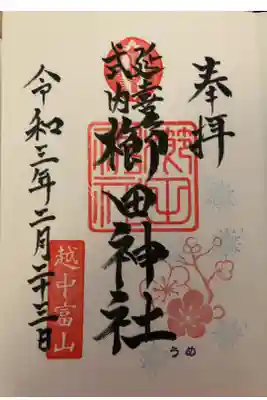 奉拝
延喜式内
櫛田神社
令和三年二月二十三日
越中富山
うめ